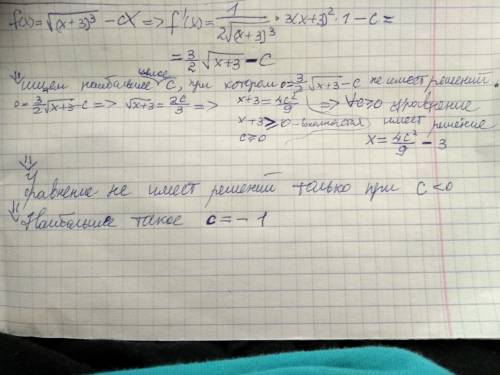 f(x)=√(x+3)³ -cx => f'(x)= 1/(2√(x+3)³) · 3(x+3)²·1-c=
= 3/2 √x+3 - c
целое
ищем наибольшее c, при котором 0=3/2 √x+3 - c не имеет решений.
0=3/2 √x+3 - c => √x+3 = 2c/3 => x+3= 4c²/9 => ∀c≥0 уравнение
x+3≥0 - имеет решение
c≥0 x= 4c²/9 - 3
Уравнение не имеет решений только при c<0
Наибольшее такое c=-1